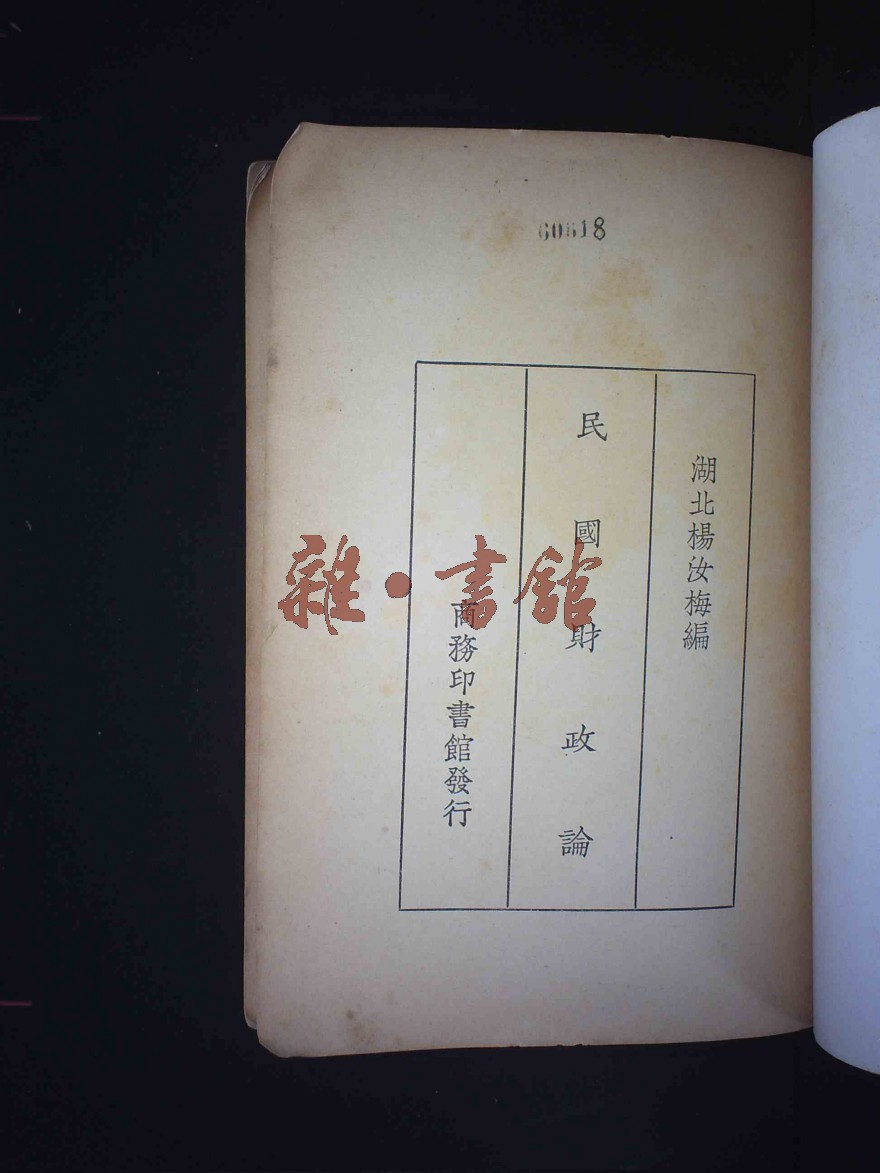 60618
湖北楊汝梅編
民國財政論
商務印書館發行
雜·書館